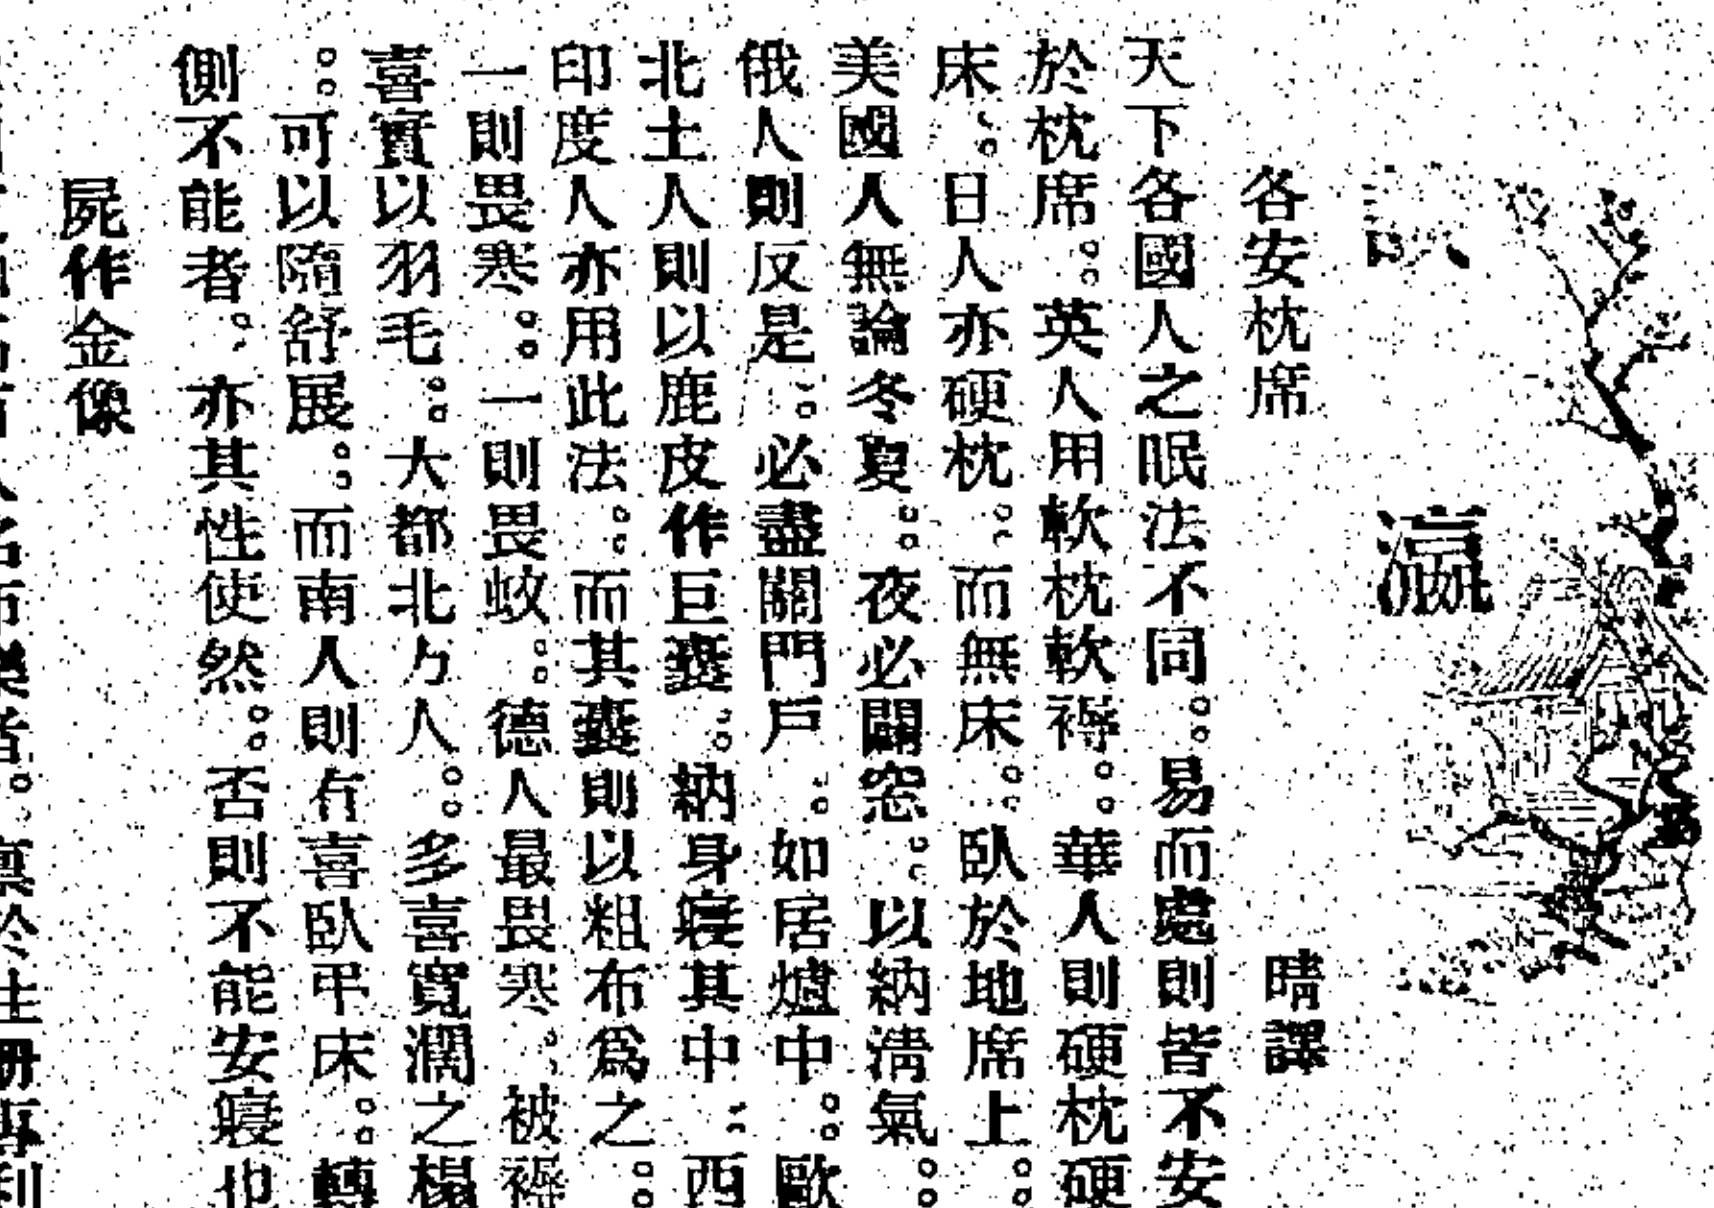 瀛
各安枕席 晴譯
天下各國人之眠法不同。易而處則皆不安
於枕席。英人用軟枕軟褥。華人則硬枕硬
床。日人亦硬枕。而無床。臥於地席上。
美國人無論冬夏。夜必闢窓。以納淸氣。
俄人則反是。必盡關門戶。如居爐中。歐
北土人則以鹿皮作巨囊。納身寢其中。西
印度人亦用此法。而其囊則以粗布爲之。
一則畏寒。一則畏蚊。德人最畏寒。被褥
喜實以羽毛。大都北方人。多喜寬濶之榻
。可以隨舒展。而南人則有喜臥弔床。轉
側不能者。亦其性使然。否則不能安寢也
屍作金像